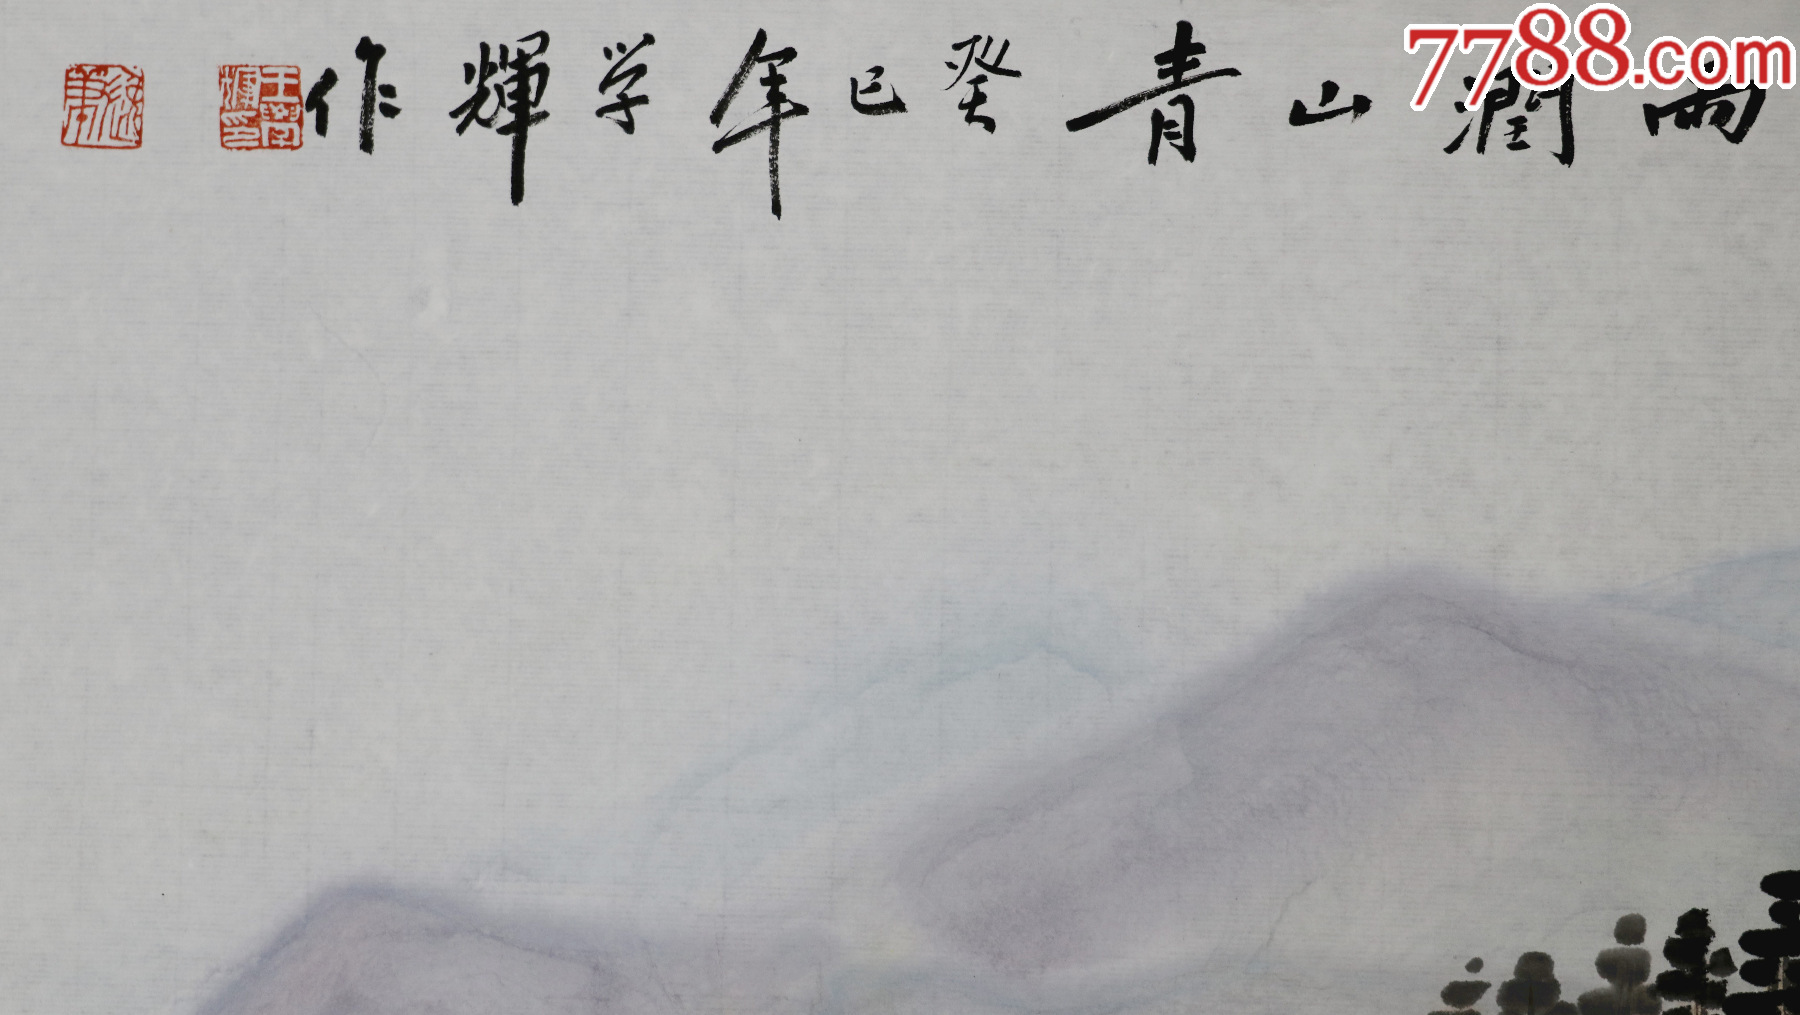 7788.com
雨潤山青癸巳年学輝作
王学輝印